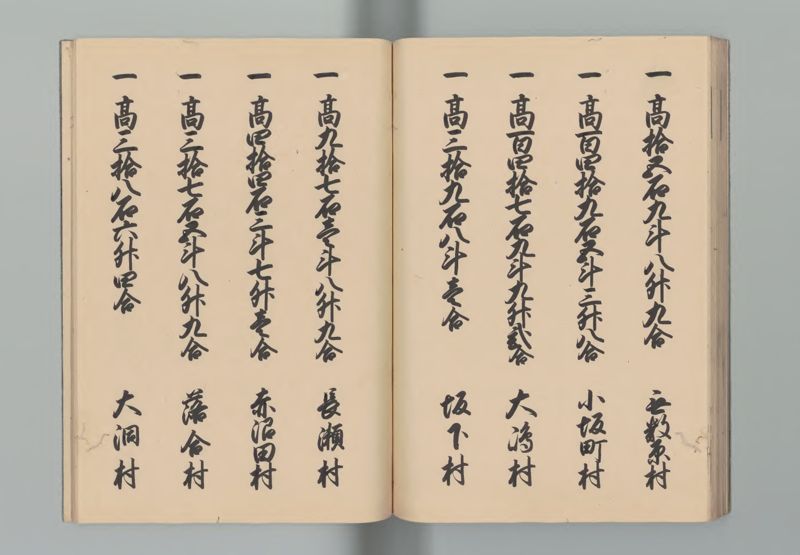 一 高拾五石九斗八升九合 無数原村
一 高百四拾九石五斗三升八合 小坂町村
一 高百四拾七石九斗九升弐合 大嶋村
一 高三拾九石八斗壱合 坂下村
一 高九拾七石壱斗八升九合 長瀬村
一 高四拾四石三斗七升壱合 赤沼田村
一 高三拾七石五斗八升九合 落合村
一 高三拾八石六升四合 大洞村